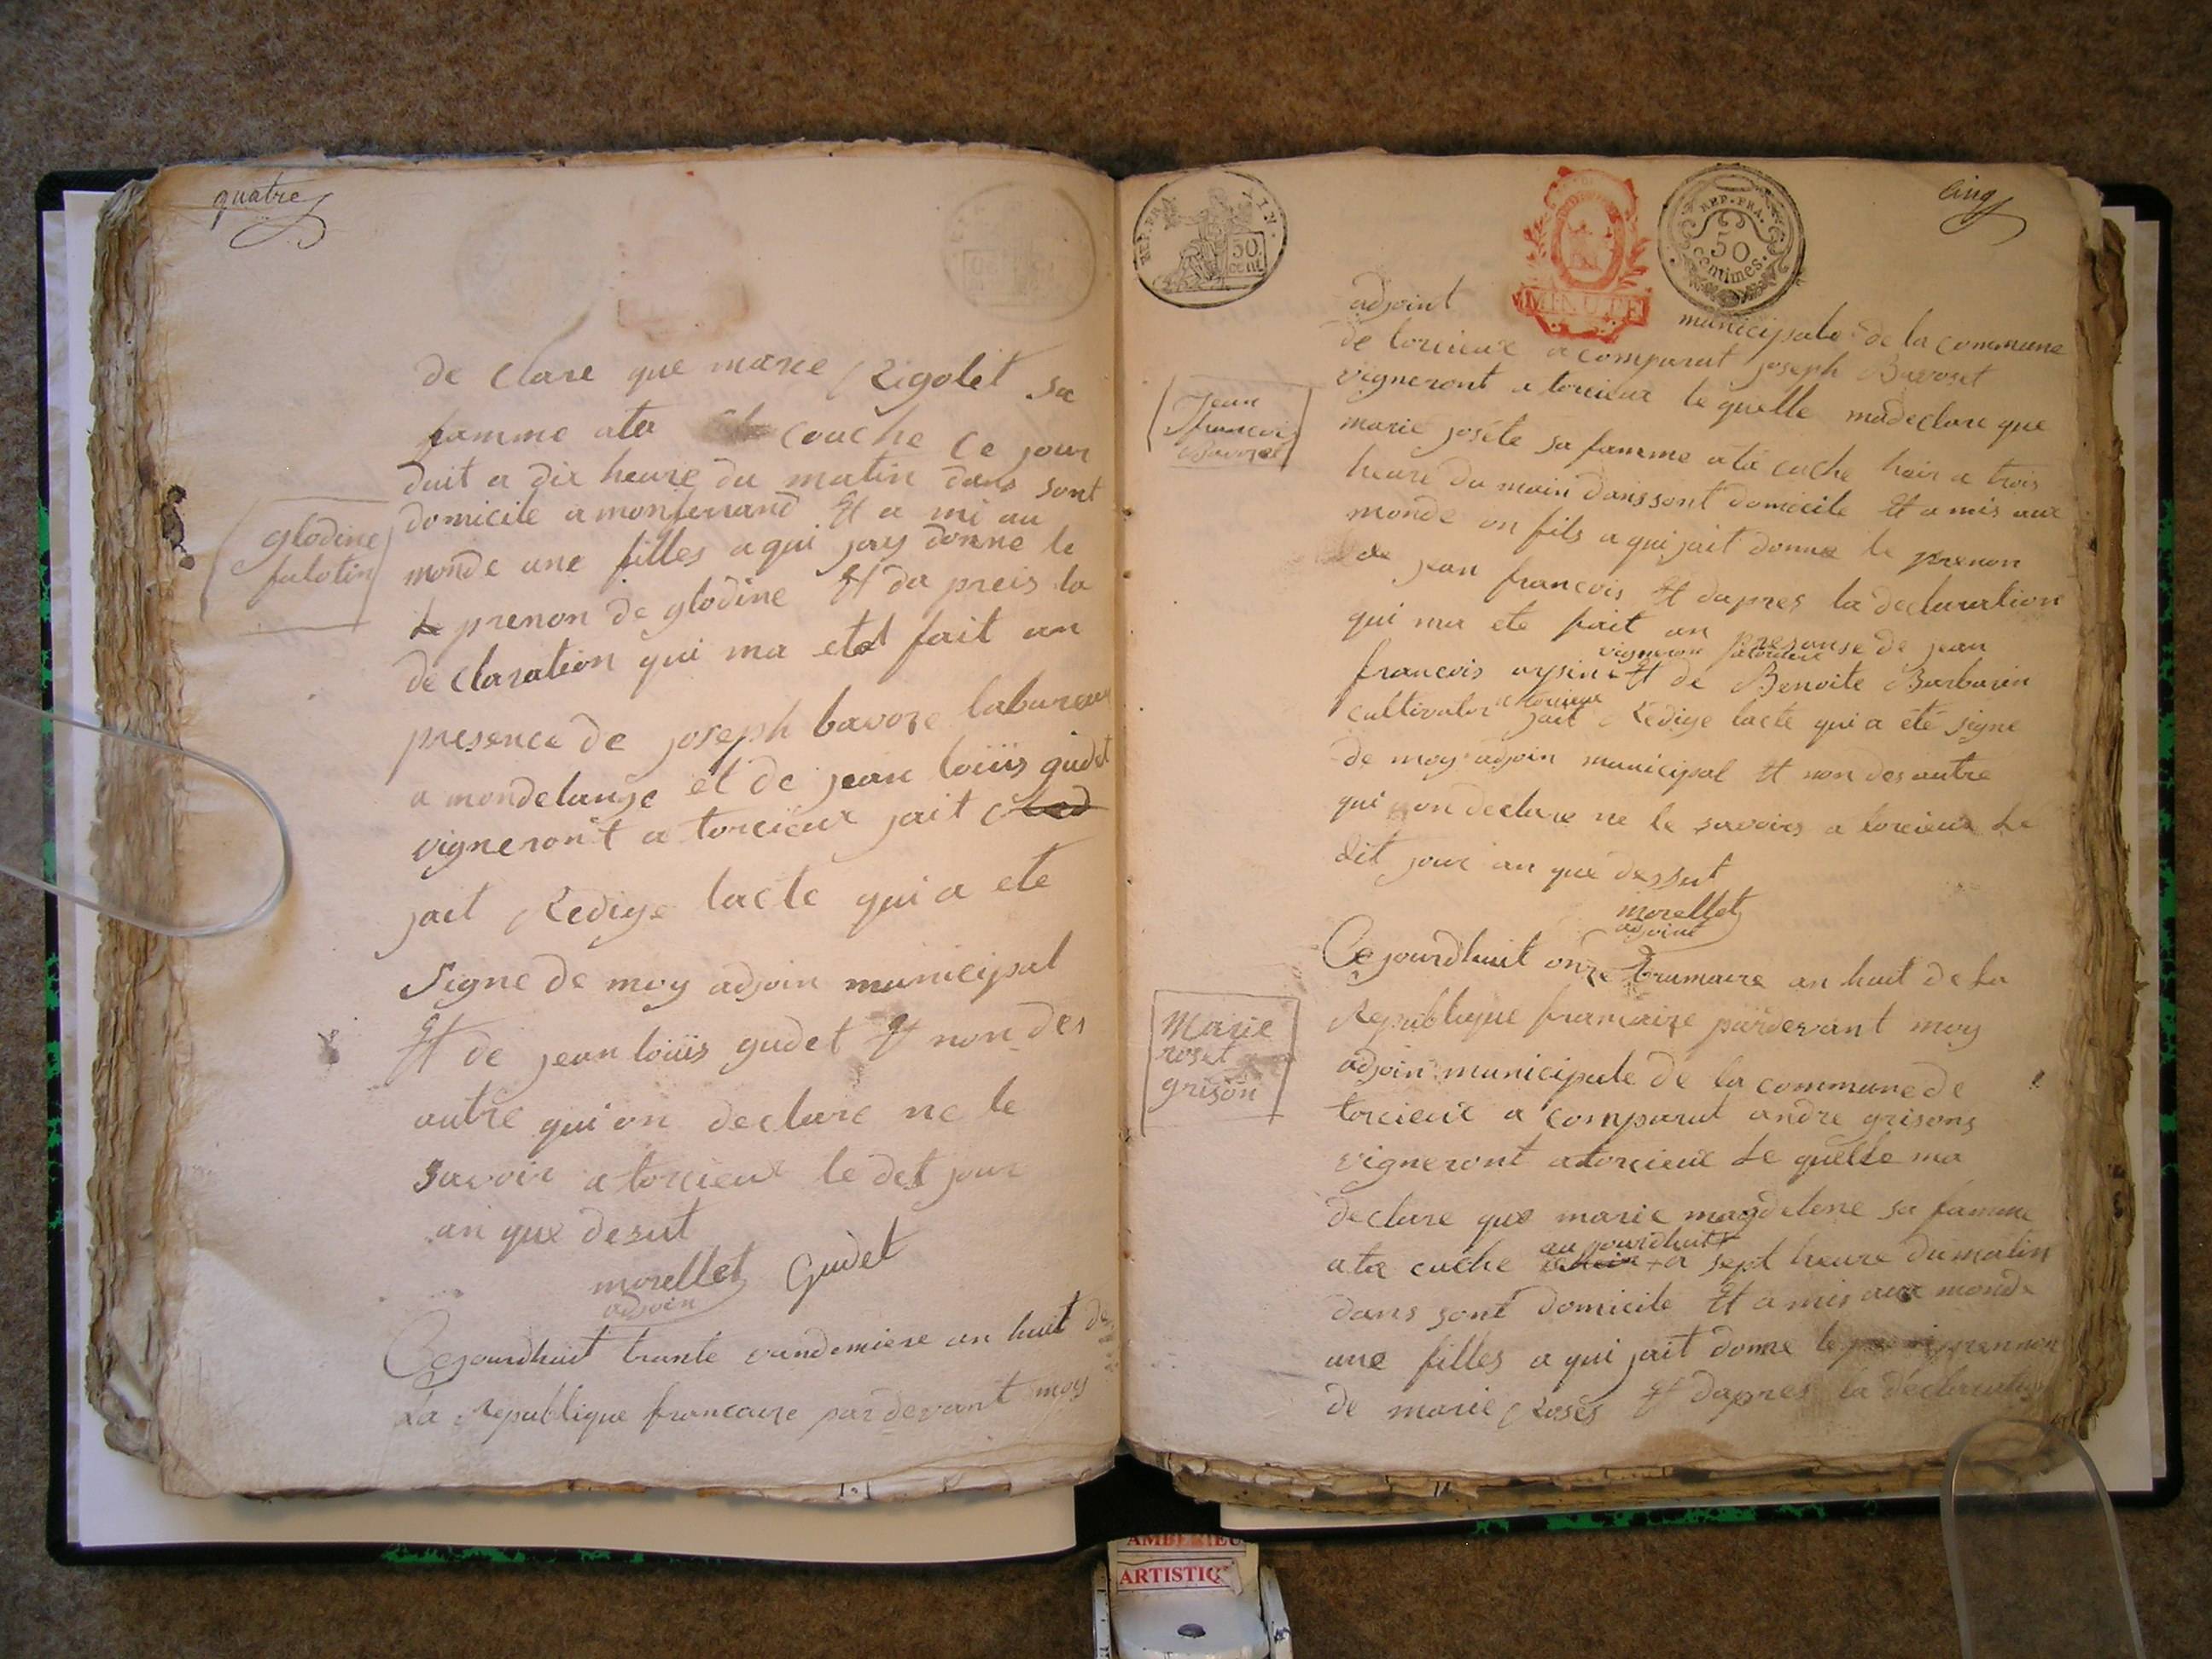 quatre
de clare que marie Rigolet sa
famme ata couche Ce jour
duit a dix heure du matin dans sont
domicile a monferrand Et a mi au
monde une filles a qui jay donne le
le prenon de glodine Et da preis la
de claration qui ma ete fait an
presence de joseph bavoze labureur
a mondelange et de jean loüis gudet
vigneront a torcieux jait
jait Redige lacte qui a ete
Signe de moy adjoin municipal
Et de jean loüis gudet Et non des
autre qui on declare ne le
savoir a torcieux le dit jour
an que desut
morellet Gudet
adjoin
Cejourdhuit trante vandemiere an huit de
La Republique francaize pardevant moy
glodine
falotin
cinq
REP. FRA.
50
cent.
MINUTE
REP. FRA.
50
centimes.
adjoint municipale de la commune
de torcieux a comparut joseph Bavozet
vigneront a torcieux le quelle madeclare que
marie joséte sa famme ata cuche hair a trois
heure du matin dans sont domicile Et a mis aux
monde on fils a qui jait donne le prenon
de jean francois Et dapres la declaration
qui ma ete fait an presanse de jean
vigneron a torcieux
francois arpin Et de Benoite Barbarin
a torcieux
cultivator jait Redige lacte qui a été signe
de moy adjoin municipal Et non des autre
qui on declare ne le savoirs a torcieux Le
dit jour an que dessut
morellet
adjoint
Jean
francois
Bavozet
Cejourdhuit onze brumaire an huit de La
Republique francaize pardevant moy
adjoin municipale de la commune de
torcieux a comparut andre grisons
vigneront a torcieux Le quelle ma
declare que marie magdelene sa famme
au jourdhuit
ata cuche a sept heure du matin
dans sont domicile Et a mis aux monde
une filles a qui jait donne le prennon
de marie Roses Et dapres la declaration
Marie
roset
grison
AMBERIEU
ARTISTIQ